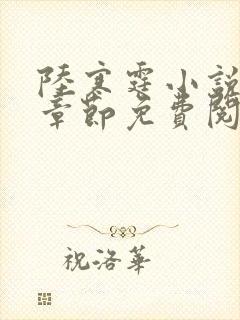 陸寒霆小說
章節免費閱
祝洛華